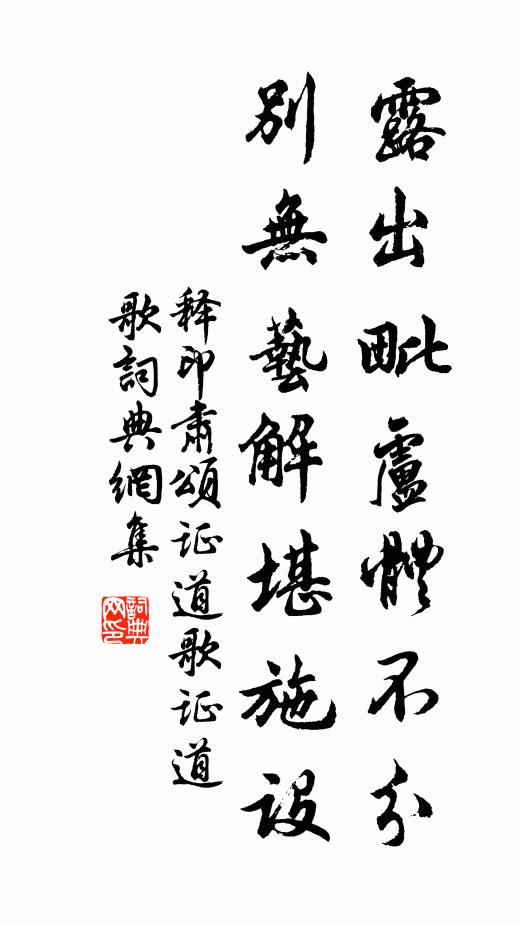 露出毗盧體不分
別無藝解堪施設
释印肃颂证道歌证道
歌詞典網集
詞典
网印